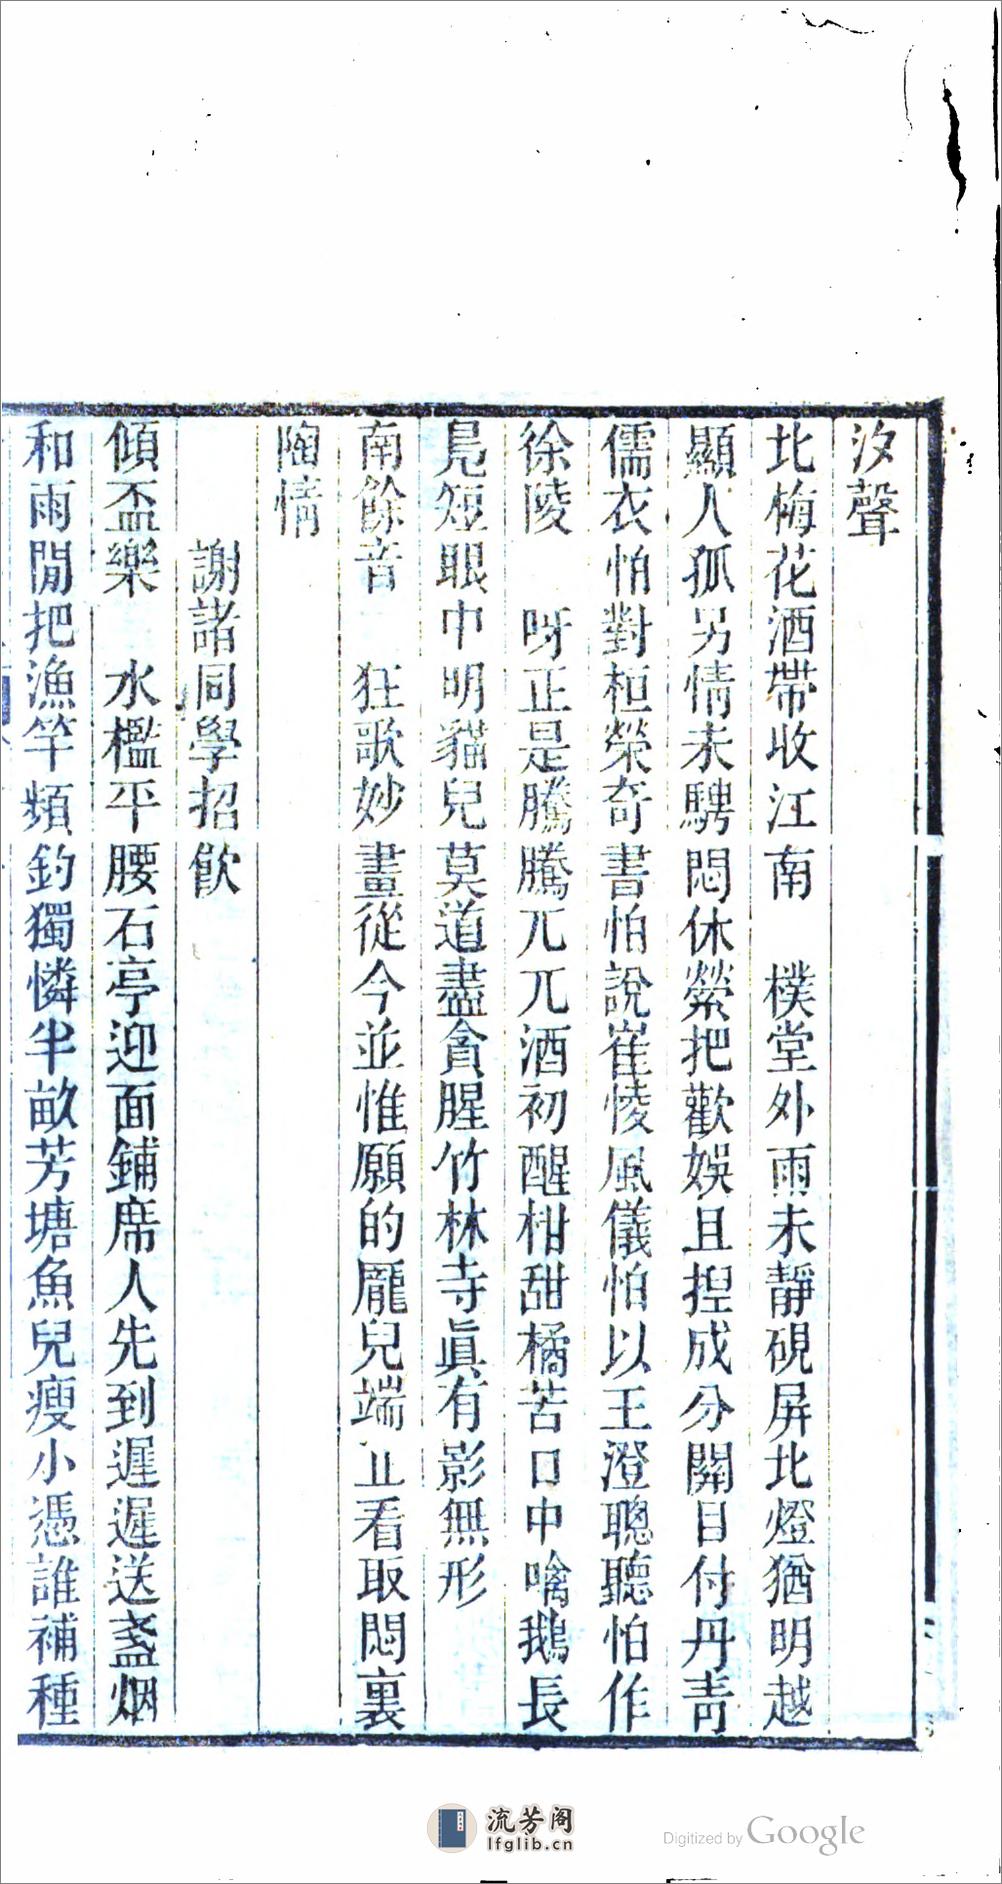 汐聲
北梅花酒帶收江南　樸堂外雨未靜硯屏北燈猶明越
顯人孤另情未騁悶休縈把歡娛且揑成分關目付丹靑
儒衣怕對桓榮奇書怕說崔㥄風儀怕以王澄聰聽怕作
徐陵　呀正是騰騰兀兀酒初醒柑甜橘苦口中噙鵝長
鳧短眼中明貓兒莫道盡貪腥竹林寺眞有影無形
南餘音　狂歌妙畫從今並惟願的龐兒端正看取悶裏
陶情
謝諸同學招飮
傾盃樂　水檻平腰石亭迎面鋪席人先到遲遲送盞烟
和雨閒把漁竿頻釣獨憐半畝芳塘魚兒瘦小憑誰補種
流芳阁
lfglib.cn
Digitized by Google